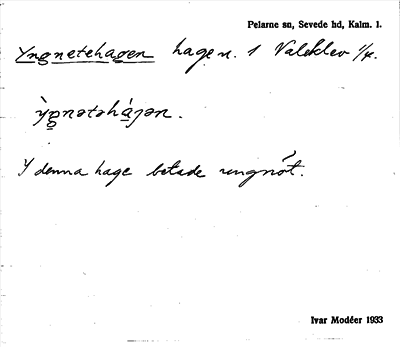 Pelarne sn, Sevede hd, Kalm. l.
Yngnetehagen hage n. 1 Valeklev 1/4.
ỳŋnətəhágən.
I denna hage betade ungnöt.
Ivar Modéer 1933